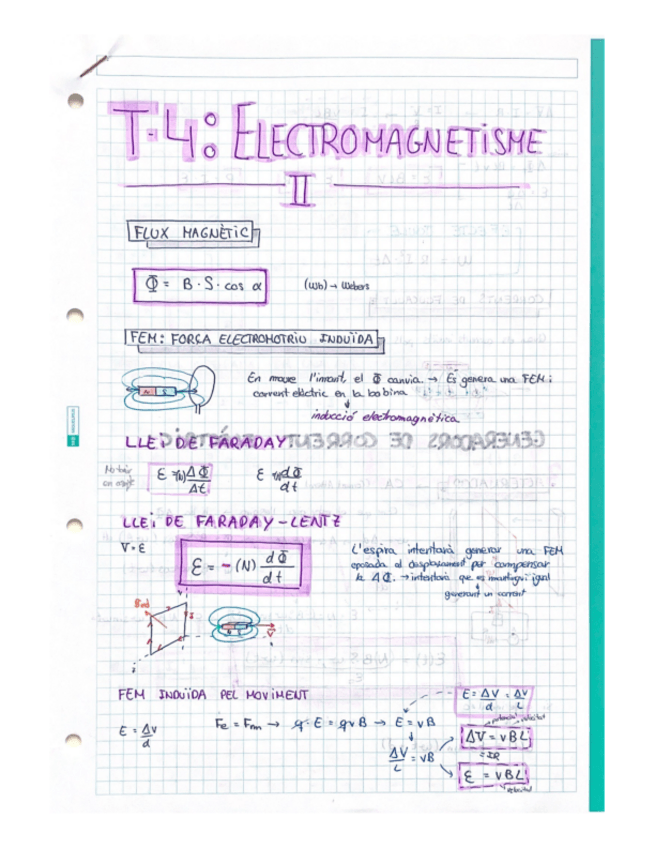 T-4: ELECTROMAGNETISME
II
FLUX MAGNÈTIC
Φ = B · S · cos α (Wb) → Webers
FEM: FORÇA ELECTROMOTRIU INDUÏDA
En moure l'imant, el Φ canvia → Es genera una FEM i
corrent elèctric en la bobina
inducció electromagnètica
LLEI DE FARADAY
ε = (N) ΔΦ / Δt
ε = (N) dΦ / dt
LLEI DE FARADAY-LENTZ
V = ε
ε = - (N) dΦ / dt
L'espira intentarà generar una FEM
oposada al desplaçament per compensar
la ΔΦ. → intentarà que es mantingui igual
generant un corrent
N S
v
FEM INDUÏDA PEL MOVIMENT
E = ΔV / d
Fe = Fm → q · E = q v B → E = vB
ΔV / L = vB
E = ΔV / d = ΔV / L
potencial velocitat
ΔV = vBL
= IR
ε = vBL
velocitat